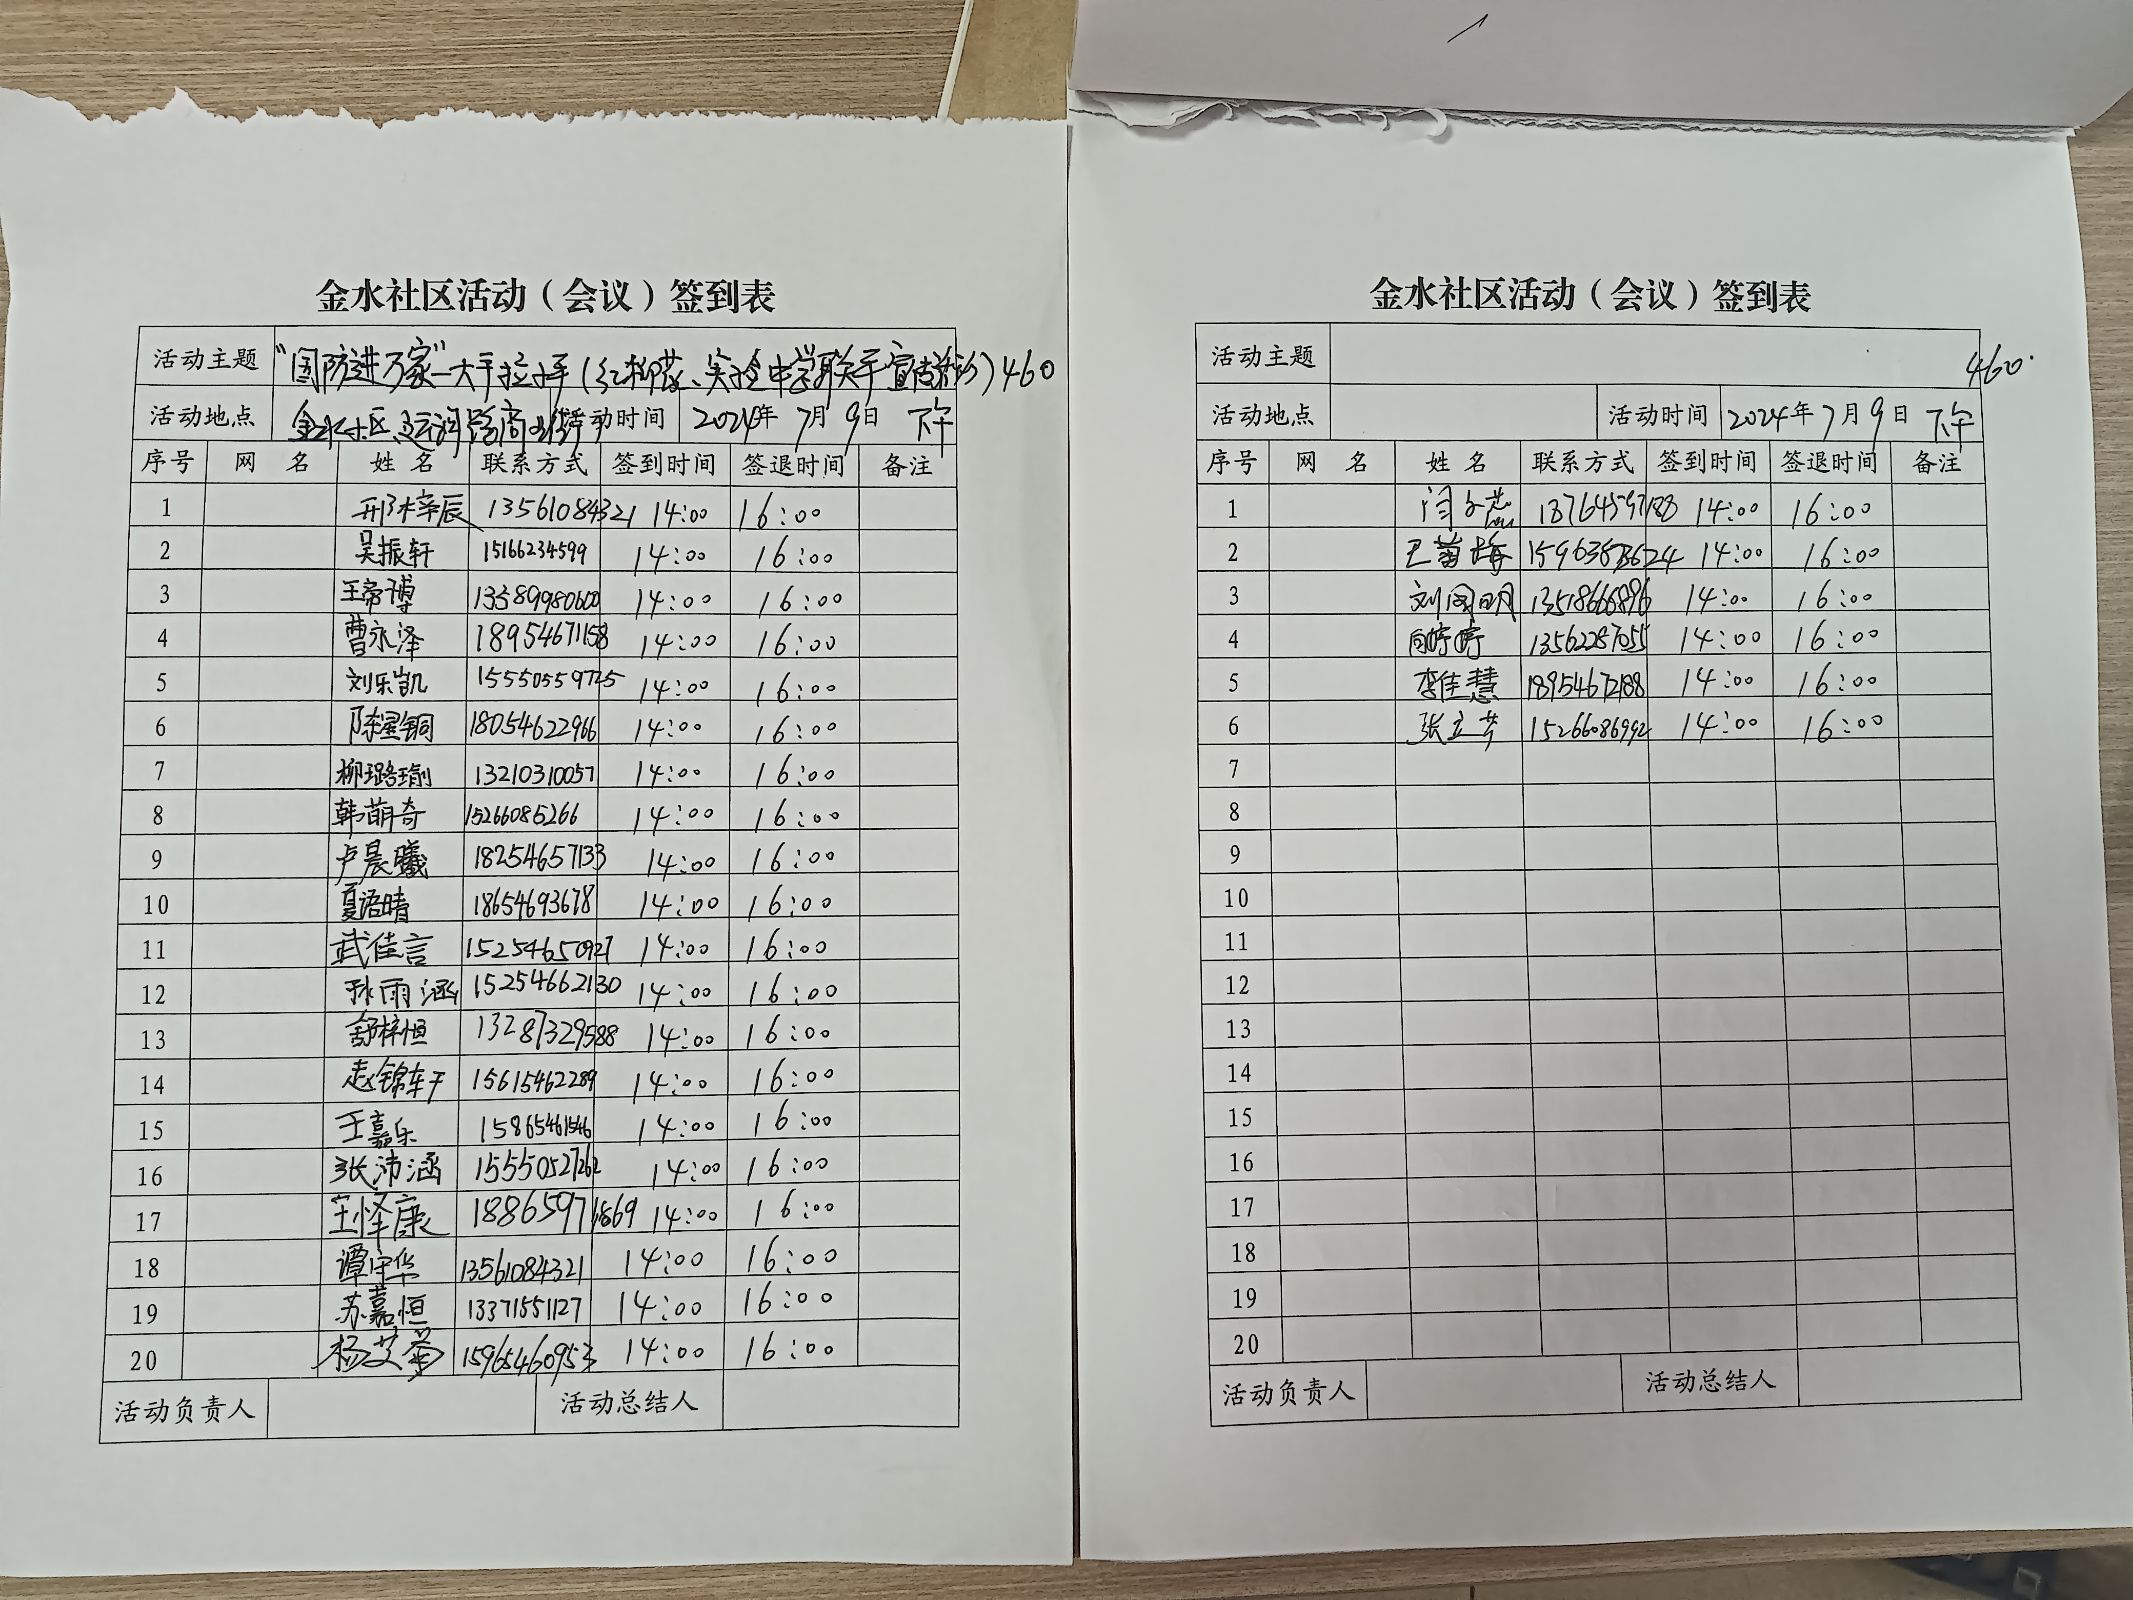 金水社区活动（会议）签到表
活动主题 “国防进万家”—大手拉小手（红柳蕊、实验中学联手宣传活动）460
活动地点 金水社区、运河路商业街 活动时间 2024年 7月 9日 下午
序号 网 名 姓 名 联系方式 签到时间 签退时间 备注
1 邢梓辰 13561084321 14:00 16:00
2 吴振轩 15166234599 14:00 16:00
3 王常博 13589980600 14:00 16:00
4 曹永泽 18954671158 14:00 16:00
5 刘乐凯 15550559725 14:00 16:00
6 陈星铜 18054622966 14:00 16:00
7 柳璐瑜 13210310057 14:00 16:00
8 韩萌奇 15266085266 14:00 16:00
9 卢晨曦 18254657133 14:00 16:00
10 夏语晴 18654693678 14:00 16:00
11 武佳言 15254650927 14:00 16:00
12 孙雨涵 15254662130 14:00 16:00
13 舒梓恒 13287329588 14:00 16:00
14 赵锦轩 15615462289 14:00 16:00
15 王嘉乐 15865461546 14:00 16:00
16 张沛涵 15550527262 14:00 16:00
17 王怿康 18865971869 14:00 16:00
18 谭宇华 13561084321 14:00 16:00
19 苏嘉恒 13371551127 14:00 16:00
20 杨艾峯 15965460953 14:00 16:00
活动负责人 活动总结人
金水社区活动（会议）签到表
活动主题 460.
活动地点 活动时间 2024年 7月 9日 下午
序号 网 名 姓 名 联系方式 签到时间 签退时间 备注
1 闫文燕 18764597188 14:00 16:00
2 王苗梅 15963873624 14:00 16:00
3 刘同明 13518666896 14:00 16:00
4 向婷婷 13562287055 14:00 16:00
5 李佳慧 18954672188 14:00 16:00
6 张立芳 15266086992 14:00 16:00
7
8
9
10
11
12
13
14
15
16
17
18
19
20
活动负责人 活动总结人